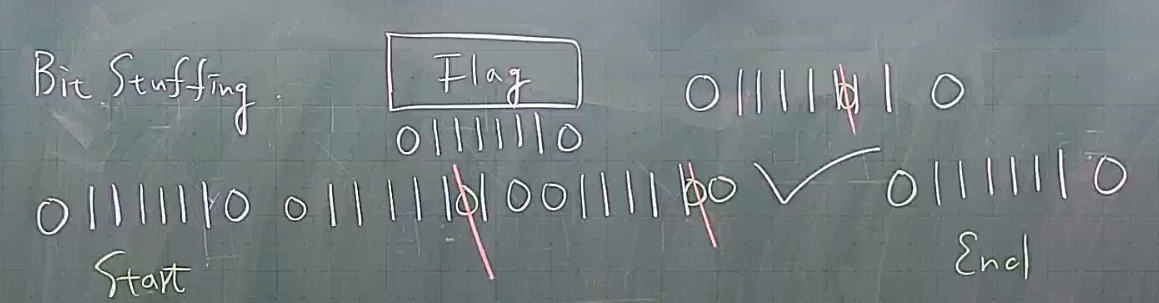 Bit Stuffing.
Flag
01111110
011111010
01111110 01111101001111100 ✓ 01111110
Start
End